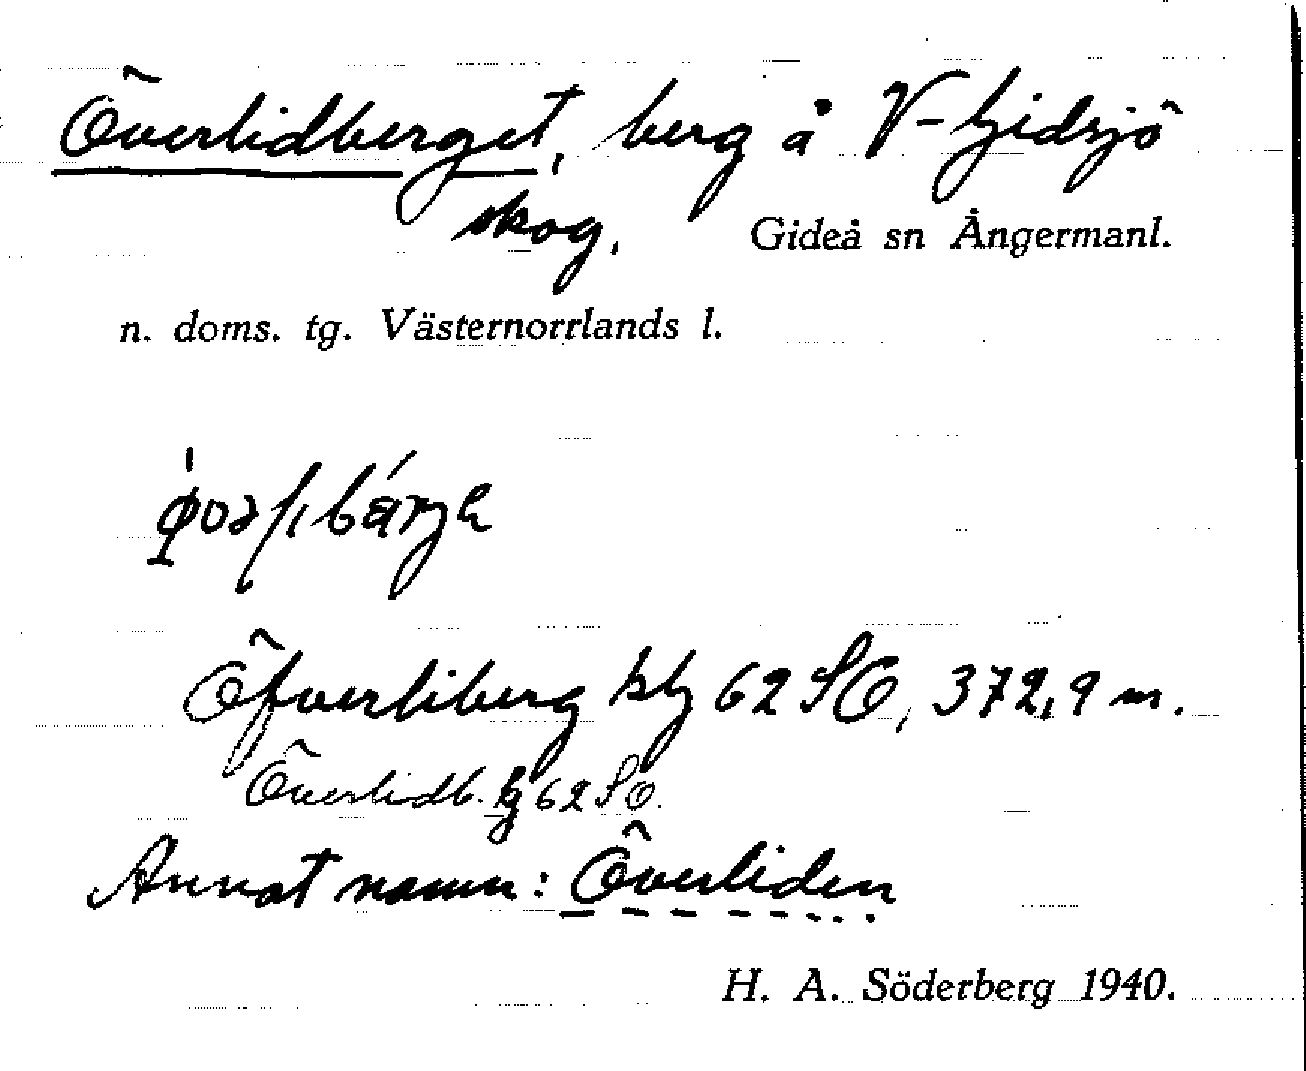 Överlidberget, berg å V-Gidsjö
skog.
Gideå sn Ångermanl.
n. doms. tg. Västernorrlands l.
Öfverliberg kbg 62 SO, 372,9 m.
Överlidb. kg 62 SO.
Annat namn: Överliden
H. A. Söderberg 1940.